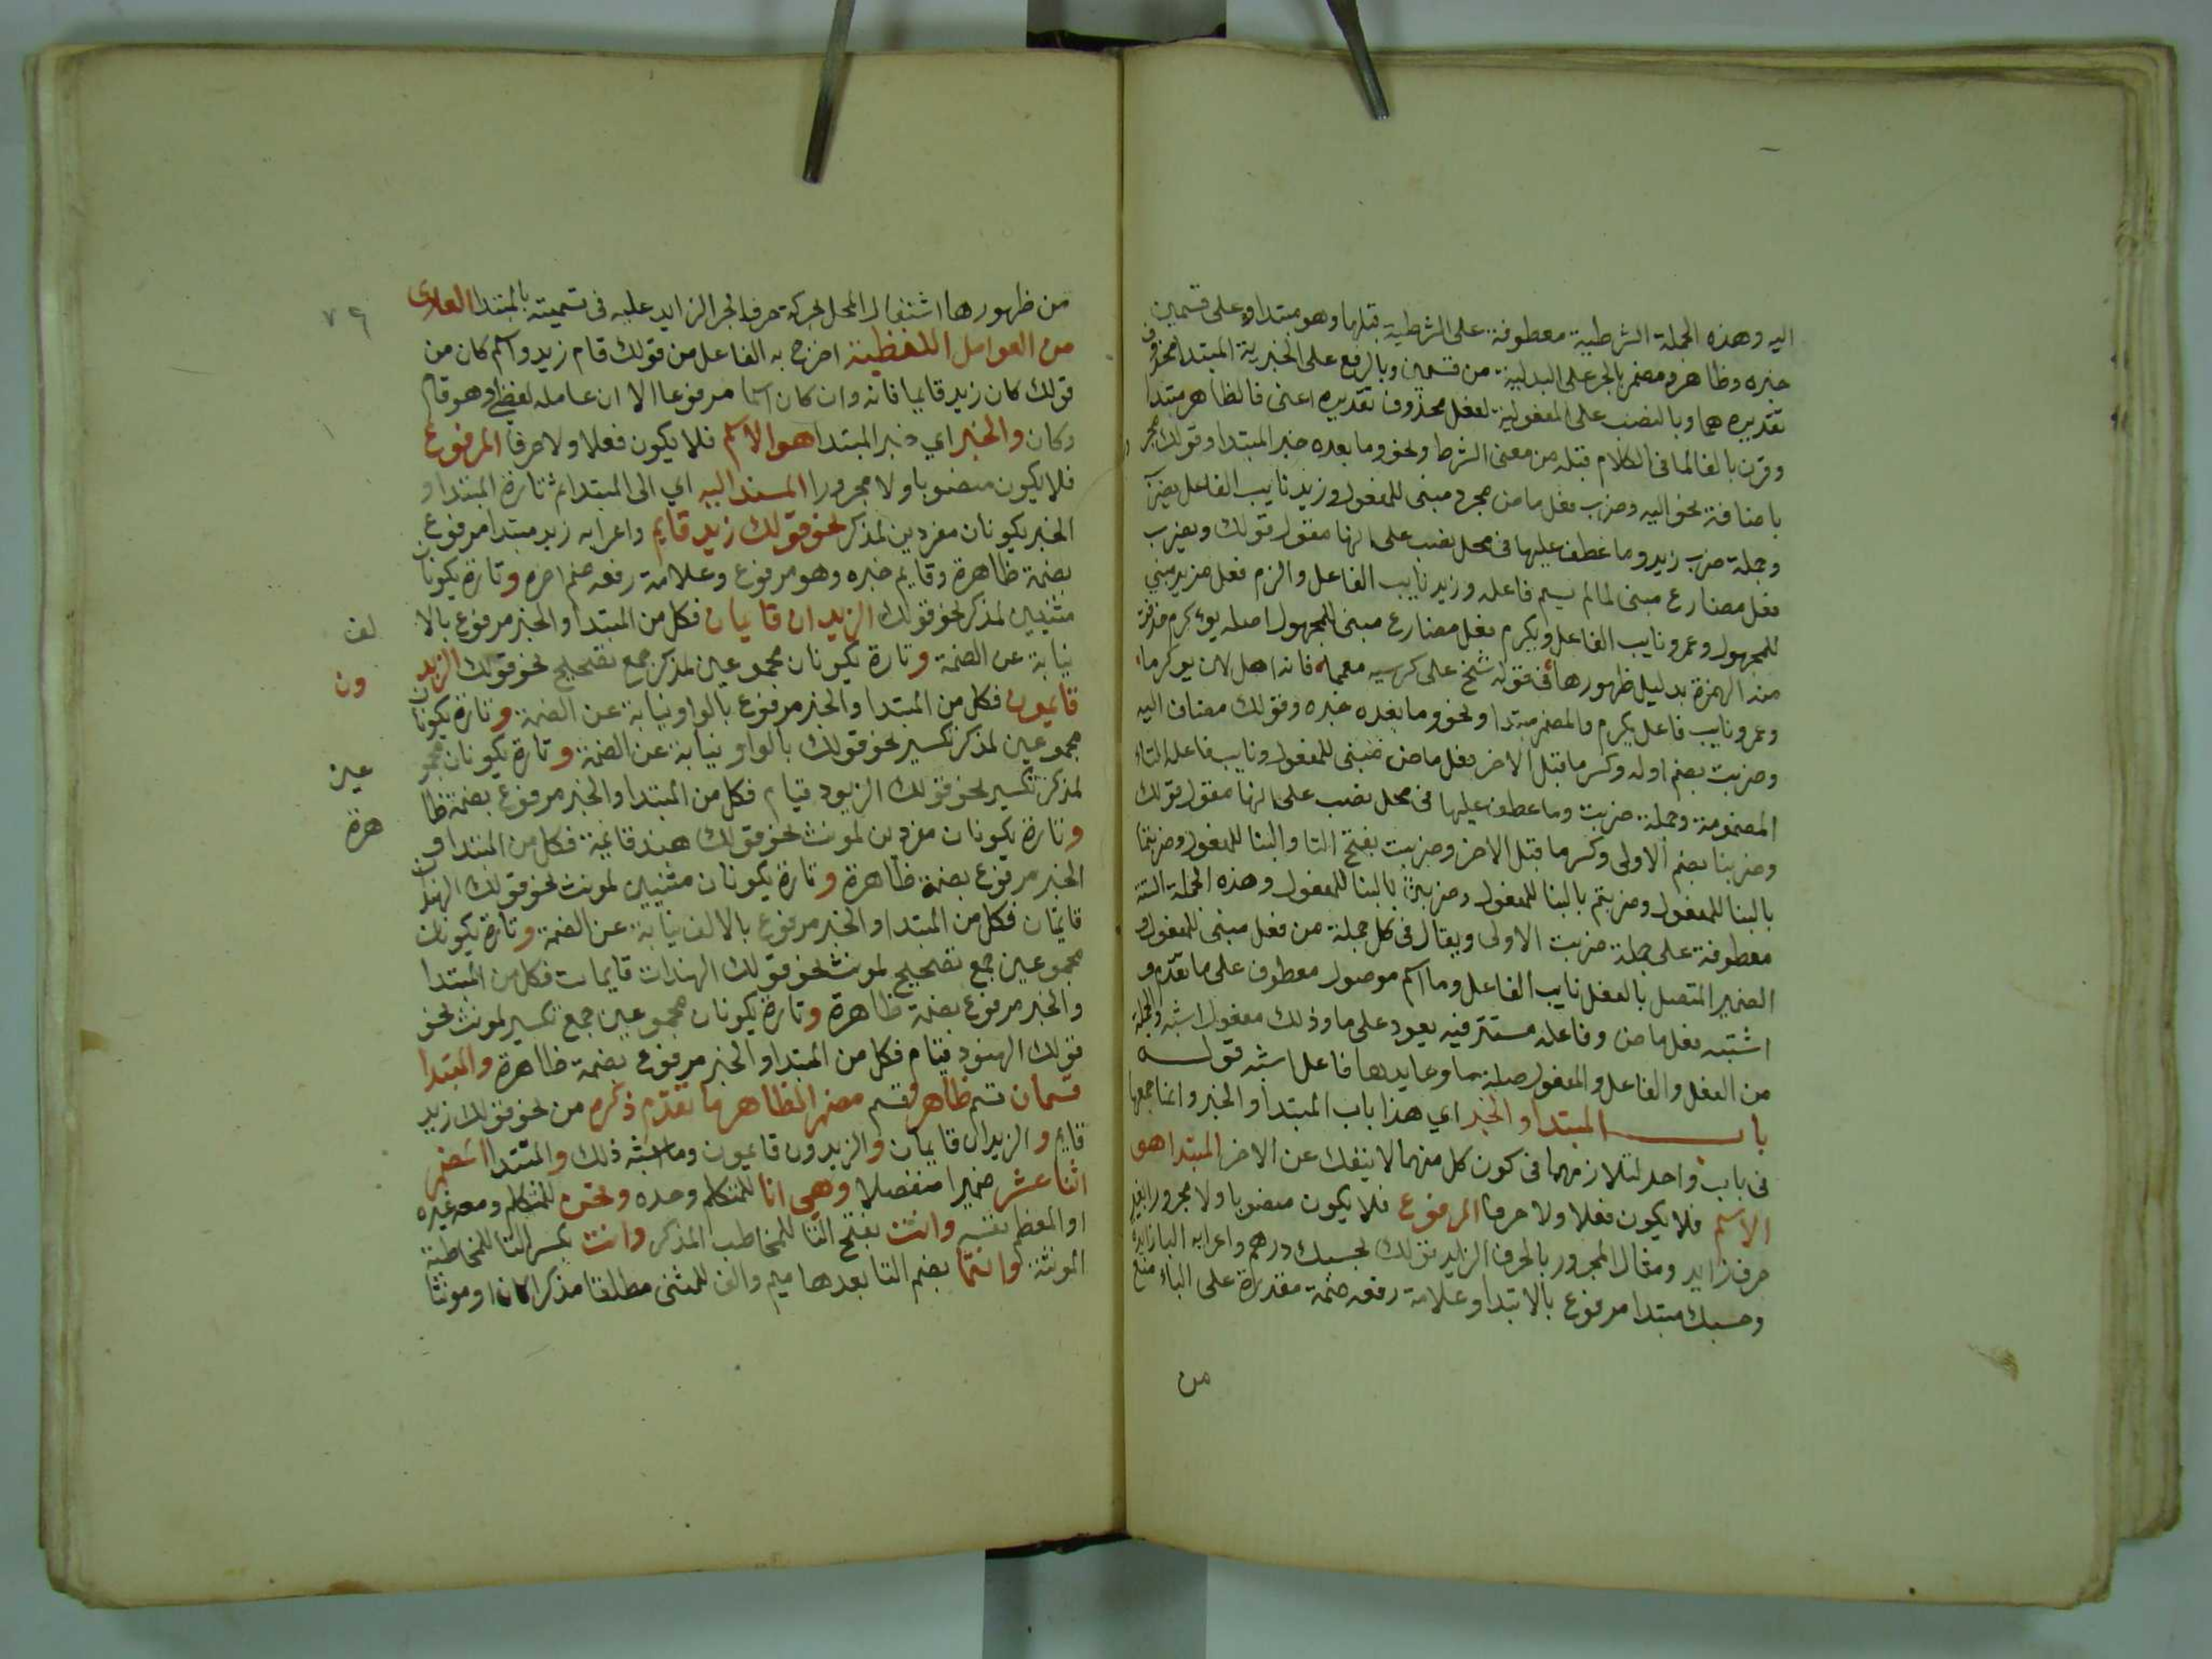 اليه وهذه الجملة الشرطية معطوفة على الشرطية قبلها وهو مبتدا وعلى قسمين
خبره وظاهر ومضمر بالجر على البدلية من قسمين وبالرفع على الخبرية المبتدا محذوف
تقديره هما وبالنصب على المفعولية لفعل محذوف تقديره اعنى فالظاهر مبتدا
وقرن بالفا لما فى الكلام قبله من معنى الشرط ونحو وما بعده خبر المبتدا وقولك مجر
باضافة نحو اليه وضرب فعل ماض مجرد مبنى للمفعول وزيد نايب الفاعل
وجملة ضرب زيد وما عطف عليها فى محل نصب على انها مقول قولك ويضرب
فعل مضارع مبنى لما لم يسم فاعله وزيد نايب الفاعل واكرم فعل مزيد مبني
للمجهول وعمرو نايب الفاعل ويكرم فعل مضارع مبنى للمجهول اصله يوءكرم حذفت
منه الهمزة بدليل ظهورها فى قوله شيخ على كرسيه معمما فانه اهل لان يوكرما
وعمرو نايب فاعل يكرم والمضمر مبتدا ونحو وما بعده خبره وقولك مضاف اليه
وضربت بضم اوله وكسر ما قبل الاخر فعل ماض مبنى للمفعول ونايب فاعله التاء
المضمومة وجملة ضربت وما عطف عليها فى محل نصب على انها مقول قولك
وضربنا بضم الاولى وكسر ما قبل الاخر وضربت بفتح التا والبنا للمفعول وضربتما
بالبنا للمفعول وضربتم بالبنا للمفعول وضربتن بالبنا للمفعول وهذه الجملة الستة
معطوفة على جملة ضربت الاولى ويقال فى كل جملة من فعل مبنى للمفعول و
الضمير المتصل بالفعل نايب الفاعل وما اسم موصول معطوف على ما تقدم و
اشبه فعل ماض وفاعله مستتر فيه يعود على ما وذلك مفعول اشبه والجملة
من الفعل والفاعل والمفعول صلة ما وعايدها فاعل اشبه قوله
باب المبتدا والخبر اي هذا باب المبتدا والخبر وانما جمعها
فى باب واحد لتلازمهما فى كون كل منهما لا ينفك عن الاخر المبتدا هو
الاسم فلا يكون فعلا ولا حرفا المرفوع فلا يكون منصوبا ولا مجرورا بغير
حرف زايد ومثال المجرور بالحرف الزايد قولك بحسبك درهم واعرابه البا زايدة
وحسبك مبتدا مرفوع بالابتدا وعلامة رفعه ضمة مقدرة على الباء منع
من
من ظهورها اشتغال المحل بحركة حرف الجر الزايد عليه فى تسميته بالمبتدا العارى
من العوامل اللفظية اخرج به الفاعل من قولك قام زيد واسم كان من
قولك كان زيد قايما فانه وان كان اسما مرفوعا الا ان عامله لفظى وهو قام
وكان والخبر اي خبر المبتدا هو الاسم فلا يكون فعلا ولا حرفا المرفوع
فلا يكون منصوبا ولا مجرورا المسند اليه اي الى المبتدا ثم تارة المبتدا و
الخبر يكونان مفردين لمذكر نحو قولك زيد قايم واعرابه زيد مبتدا مرفوع
بضمة ظاهرة وقايم خبره وهو مرفوع وعلامة رفعه ضم اخره وتارة يكونان
مثنيين لمذكر نحو قولك الزيدان قايمان فكل من المبتدا والخبر مرفوع بالا لف
نيابة عن الضمة وتارة يكونان مجموعين لمذكر جمع تصحيح نحو قولك الزيد ون
قايمون فكل من المبتدا والخبر مرفوع بالواو نيابة عن الضمة وتارة يكونان
مجموعين لمذكر تكسير نحو قولك بالواو نيابة عن الضمة وتارة يكونان مجمو عين
لمذكر تكسير نحو قولك الزيود قيام فكل من المبتدا والخبر مرفوع بضمة ظا هرة
وتارة يكونان مفردين لمونث نحو قولك هند قايمة فكل من المبتدا و
الخبر مرفوع بضمة ظاهرة وتارة يكونان مثنيين لمونث نحو قولك الهندان
قايمتان فكل من المبتدا والخبر مرفوع بالالف نيابة عن الضمة وتارة يكونان
مجموعين جمع تصحيح لمونث نحو قولك الهندات قايمات فكل من المبتدا
والخبر مرفوع بضمة ظاهرة وتارة يكونان مجموعين جمع تكسير لمونث نحو
قولك الهنود قيام فكل من المبتدا والخبر مرفوع بضمة ظاهرة والمبتدا
قسمان قسم ظاهر وقسم مضمر الظاهر ما تقدم ذكره من نحو قولك زيد
قايم والزيدان قايمان والزيدون قايمون وما اشبه ذلك والمبتدا المضمر
اثنا عشر ضميرا منفصلا وهي انا للمتكلم وحده ونحن للمتكلم ومعه غيره
او المعظم نفسه وانت بفتح التا للمخاطب المذكر وانت بكسر التا للمخاطبة
المونثة وانتما بضم التا بعدها ميم والف للمثنى مطلقا مذكرا كان او مونثا